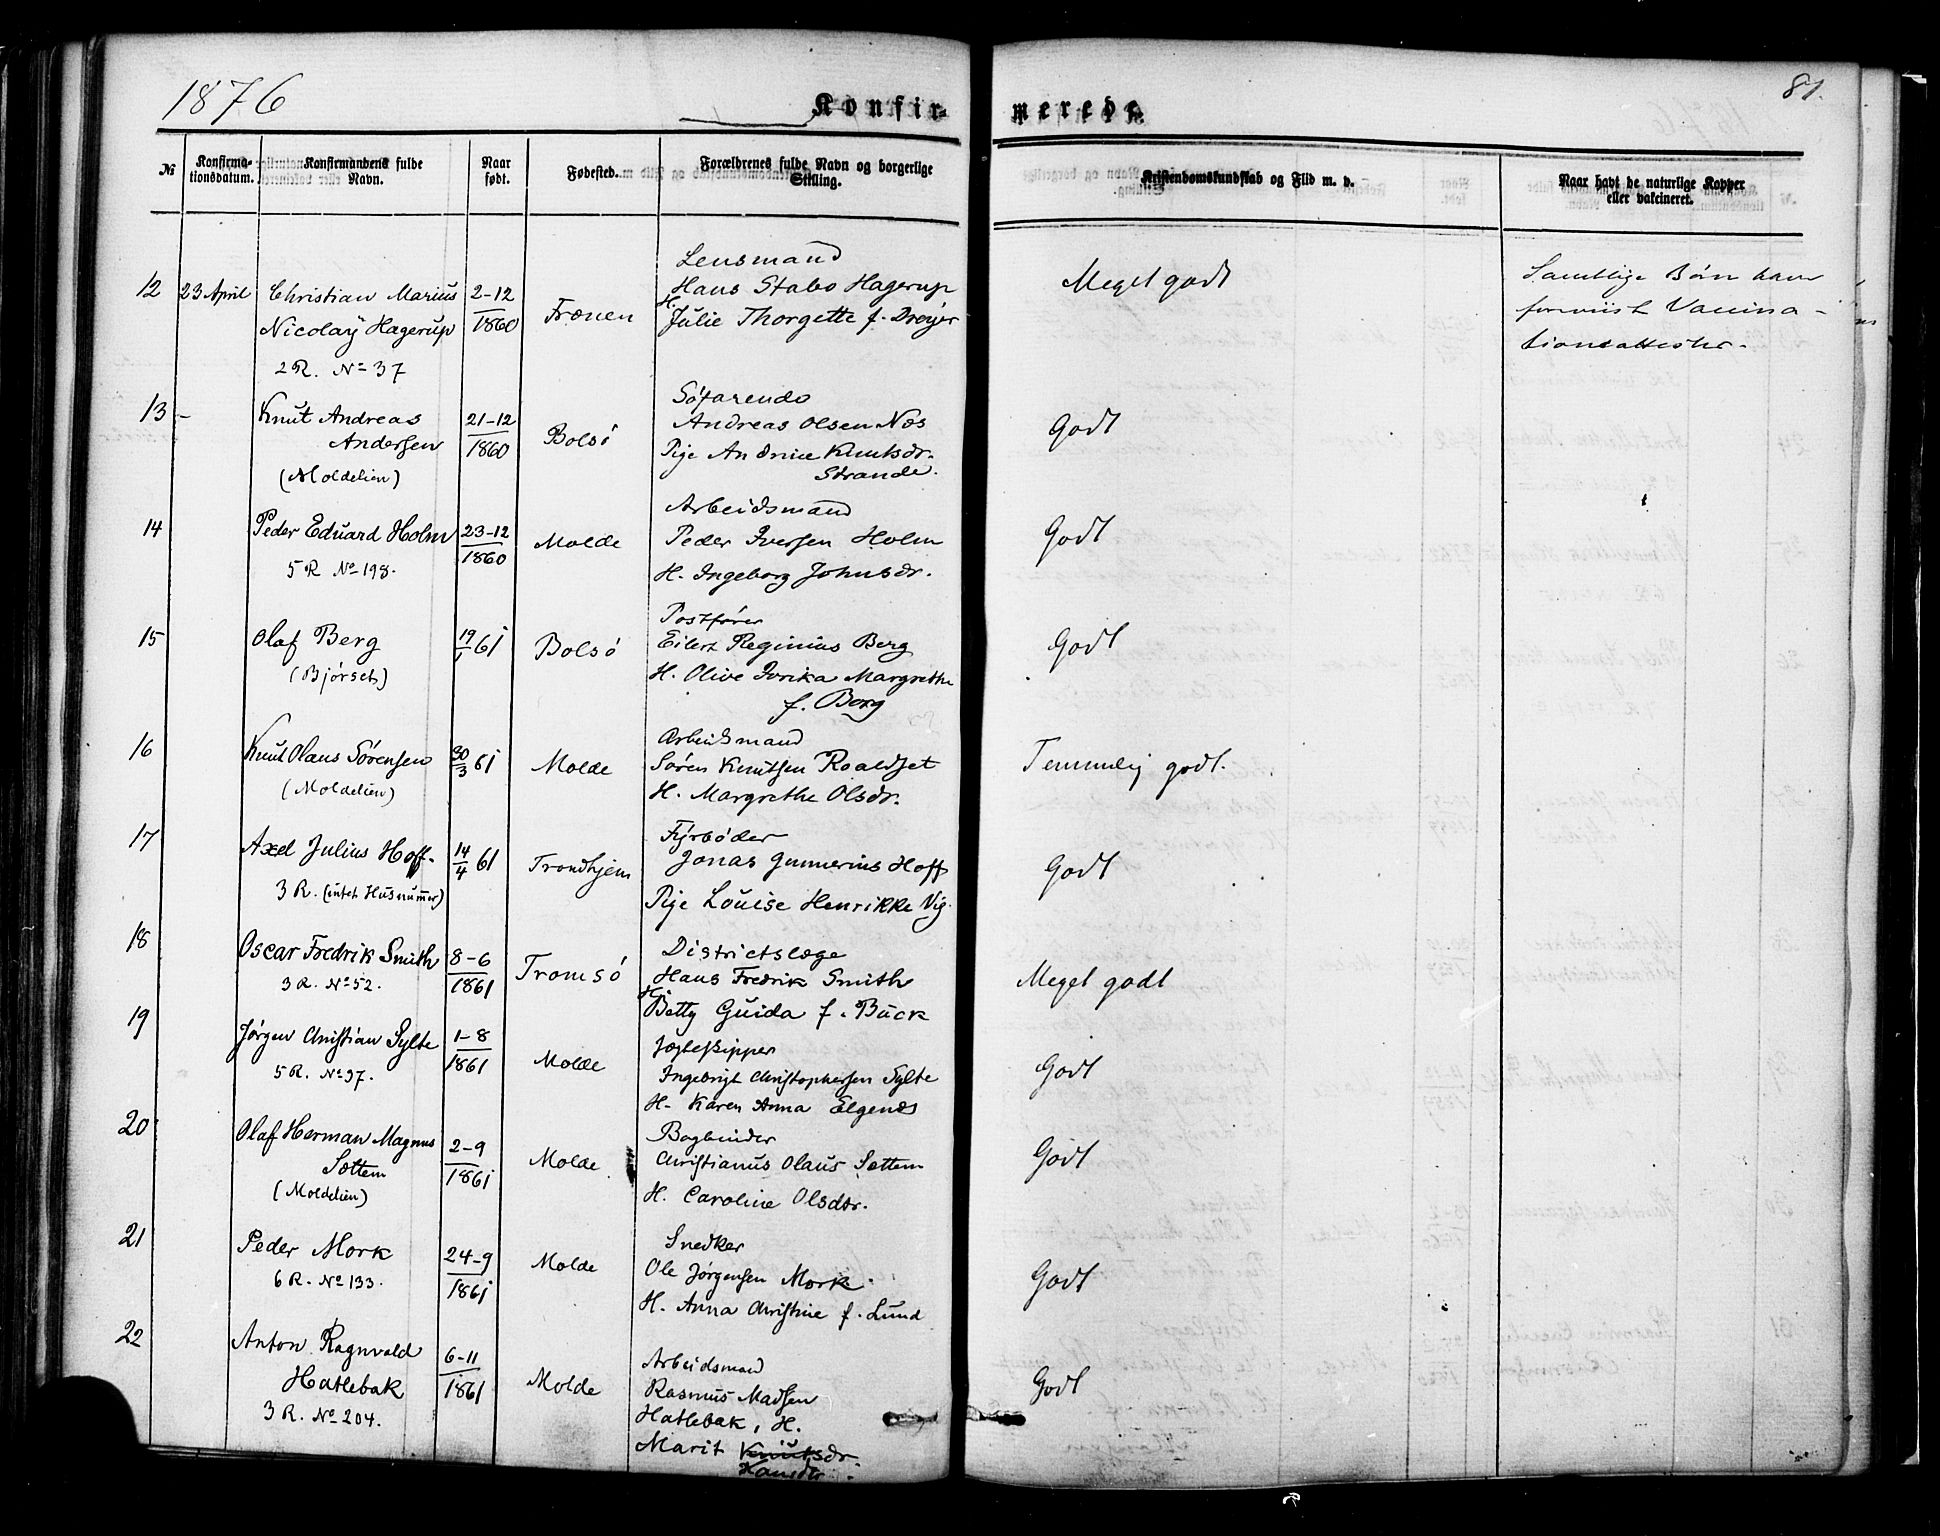 1876
81.
Konfir- merede.
№
Konfirma-
tionsdatum.
Konfirmandens fulde
Navn.
Naar
født.
Fødested.
Forældrenes fulde Navn og borgerlige
Stilling.
Kristendomskundskab og Flid m. v.
Naar havt de naturlige Kopper
eller vakcineret.
12 23 April Christian Marius
Nicolay Hagerup
2 R. No 37
2-12
1860
Frænen
Lensmand
Hans Stabo Hagerup
H. Julie Thorgette f. Drøyer
Meget godt
Samtlige Børn have
foreviist Vaccina-
tionsattester.
13 - Knut Andreas
Andersen
(Moldelien)
21-12
1860
Bolsö
Söfarende
Andreas Olsen Næs
Pige Andrine Knutsdr.
Strande.
Godt
14 Peder Eduard Holm
5 R No 198.
23-12
1860
Molde
Arbeidsmand
Peder Iversen Holm
H. Ingeborg Johnsdr.
Godt
15 Olaf Berg
(Bjørset)
19/1 61
Bolsö
Postfører
Eilert Reginius Berg
H. Olive Margrethe
f. Borg
Godt
16 Knut Olaus Sörensen
(Moldelien)
30/3 61
Molde
Arbeidsmand
Søren Knutsen Roaldset
H. Margrethe Olsdr.
Temmelig godt.
17 Axel Julius Hoff.
3 R. (intet Husnummer)
14/4 61
Trondhjem
Fyrbøder
Jonas Gunnerius Hoff
Pige Louise Henrikke Vig.
Godt
18 Oscar Fredrik Smith
3 R. No 52.
8-6
1861
Tromsö
Districtslæge
Hans Fredrik Smith
H. Betty Guida f. Buck
Meget godt
19 Jørgen Christian Sylte
5 R. No 37.
1-8
1861
Molde
Jægteskipper
Ingebrigt Christophersen Sylte
H. Karen Anna Elgenes
Godt
20 Olaf Herman Magnus
Sættem
(Moldelien)
2-9
1861
Molde
Bogbinder
Christianus Olaus Sættem
H. Caroline Olsdtr.
Godt
21 Peder Mork
6 R. No 133.
24-9
1861
Molde
Snedker
Ole Jørgensen Mork.
H. Anna Christine f. Lund
Godt
22 Anton Ragnvald
Hatlebak
3 R. No 204.
6-11
1861
Molde
Arbeidsmand
Rasmus Madsen
Hatlebak, H.
Marit Knutsdr.
Hansdtr.
Godt